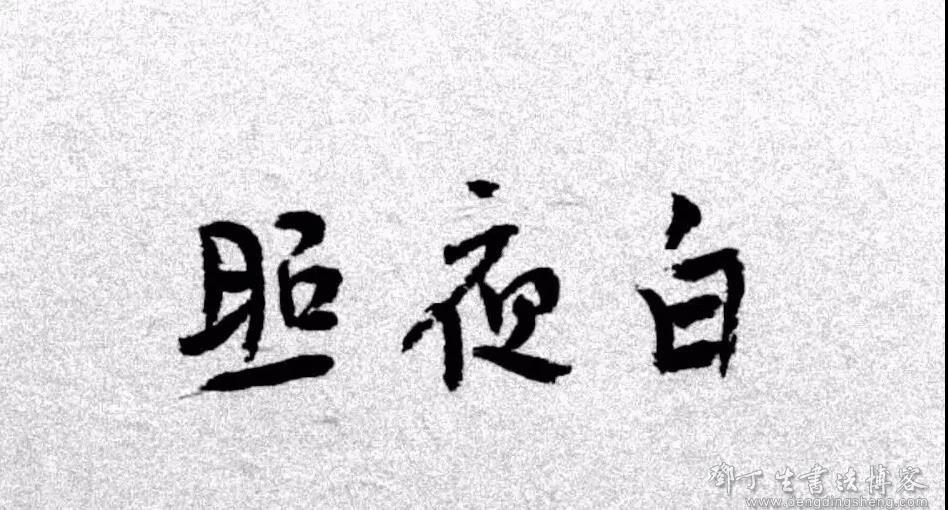 照夜白
鄧丁生书法博客
www.dengdingsheng.com